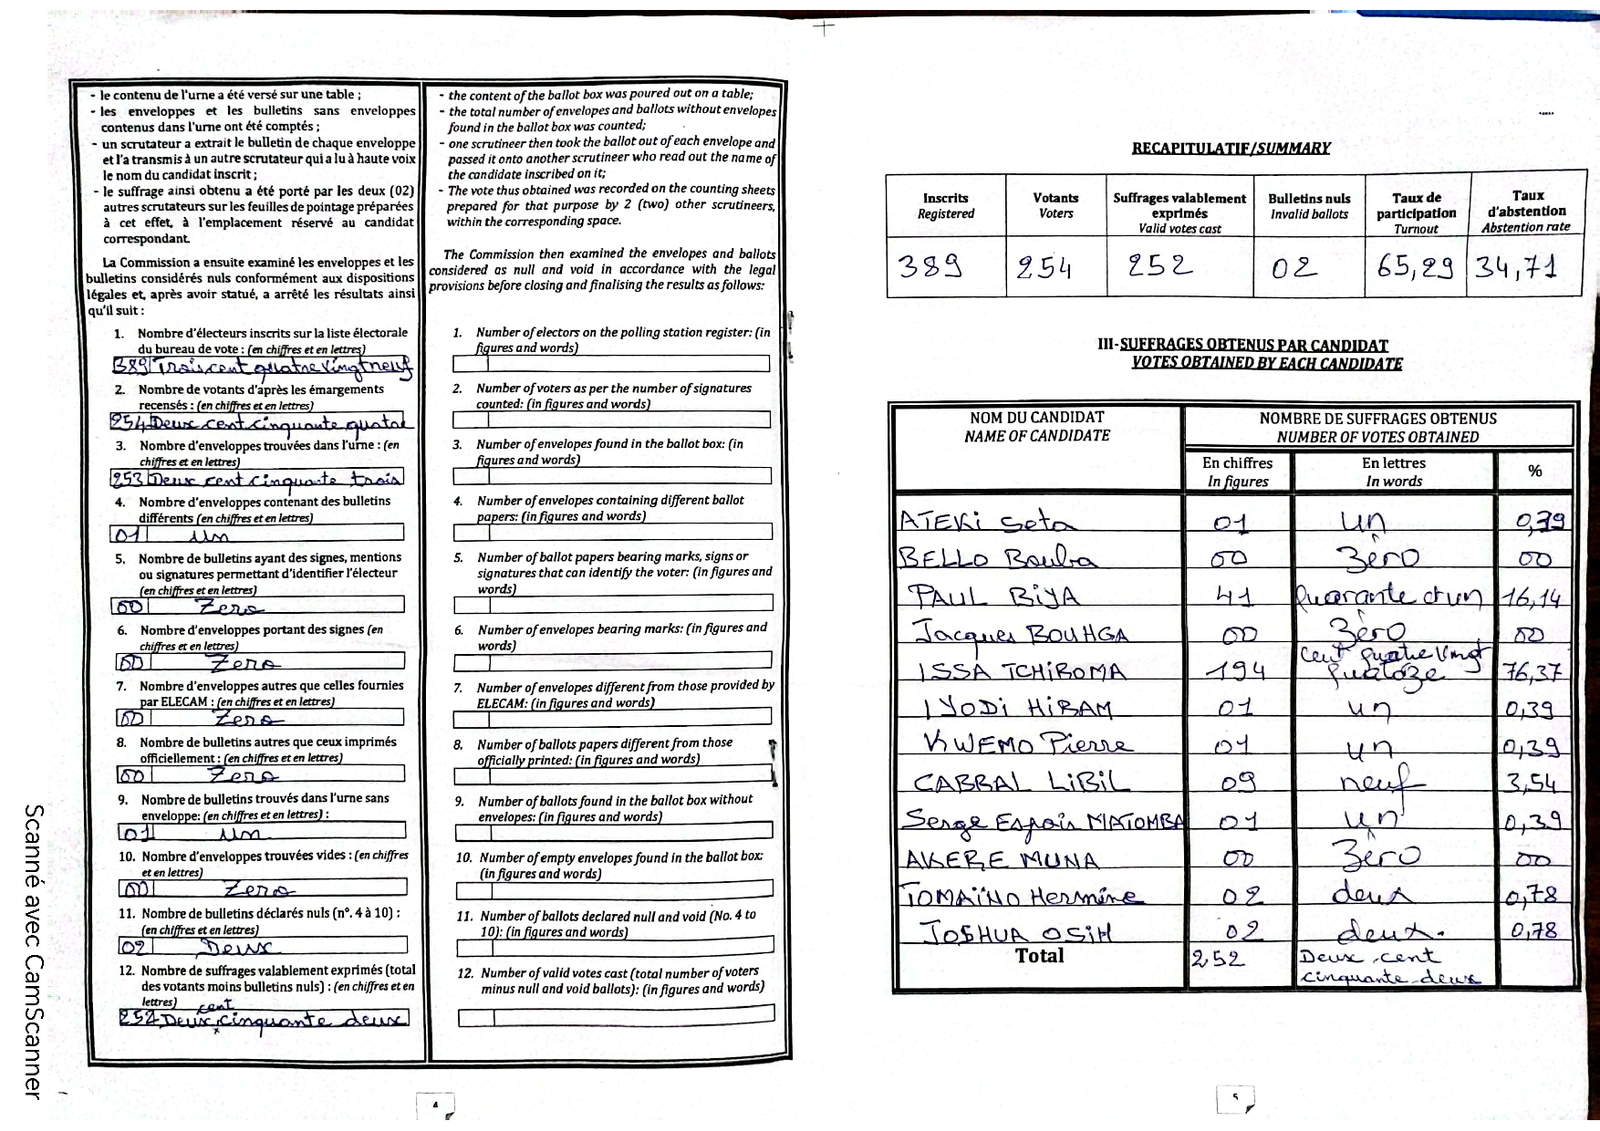 - le contenu de l'urne a été versé sur une table ;
- les enveloppes et les bulletins sans enveloppes
contenus dans l'urne ont été comptés ;
- un scrutateur a extrait le bulletin de chaque enveloppe
et l'a transmis à un autre scrutateur qui a lu à haute voix
le nom du candidat inscrit ;
- le suffrage ainsi obtenu a été porté par les deux (02)
autres scrutateurs sur les feuilles de pointage préparées
à cet effet, à l'emplacement réservé au candidat
correspondant.
La Commission a ensuite examiné les enveloppes et les
bulletins considérés nuls conformément aux dispositions
légales et, après avoir statué, a arrêté les résultats ainsi
qu'il suit :
1. Nombre d'électeurs inscrits sur la liste électorale
du bureau de vote : (en chiffres et en lettres)
389 Trois cent quatre vingt neuf
2. Nombre de votants d'après les émargements
recensés : (en chiffres et en lettres)
254 Deux cent cinquante quatre
3. Nombre d'enveloppes trouvées dans l'urne : (en
chiffres et en lettres)
253 Deux cent cinquante trois
4. Nombre d'enveloppes contenant des bulletins
différents (en chiffres et en lettres)
01 un
5. Nombre de bulletins ayant des signes, mentions
ou signatures permettant d'identifier l'électeur
(en chiffres et en lettres)
00 Zero
6. Nombre d'enveloppes portant des signes (en
chiffres et en lettres)
00 Zero
7. Nombre d'enveloppes autres que celles fournies
par ELECAM : (en chiffres et en lettres)
00 Zero
8. Nombre de bulletins autres que ceux imprimés
officiellement : (en chiffres et en lettres)
00 Zero
9. Nombre de bulletins trouvés dans l'urne sans
enveloppe: (en chiffres et en lettres) :
01 un
10. Nombre d'enveloppes trouvées vides : (en chiffres
et en lettres)
00 Zero
11. Nombre de bulletins déclarés nuls (n°. 4 à 10) :
(en chiffres et en lettres)
02 Deux
12. Nombre de suffrages valablement exprimés (total
des votants moins bulletins nuls) : (en chiffres et en
lettres)
252 Deux cent cinquante deux
- the content of the ballot box was poured out on a table;
- the total number of envelopes and ballots without envelopes
found in the ballot box was counted;
- one scrutineer then took the ballot out of each envelope and
passed it onto another scrutineer who read out the name of
the candidate inscribed on it;
- The vote thus obtained was recorded on the counting sheets
prepared for that purpose by 2 (two) other scrutineers,
within the corresponding space.
The Commission then examined the envelopes and ballots
considered as null and void in accordance with the legal
provisions before closing and finalising the results as follows:
1. Number of electors on the polling station register: (in
figures and words)
2. Number of voters as per the number of signatures
counted: (in figures and words)
3. Number of envelopes found in the ballot box: (in
figures and words)
4. Number of envelopes containing different ballot
papers: (in figures and words)
5. Number of ballot papers bearing marks, signs or
signatures that can identify the voter: (in figures and
words)
6. Number of envelopes bearing marks: (in figures and
words)
7. Number of envelopes different from those provided by
ELECAM: (in figures and words)
8. Number of ballots papers different from those
officially printed: (in figures and words)
9. Number of ballots found in the ballot box without
envelopes: (in figures and words)
10. Number of empty envelopes found in the ballot box:
(in figures and words)
11. Number of ballots declared null and void (No. 4 to
10): (in figures and words)
12. Number of valid votes cast (total number of voters
minus null and void ballots): (in figures and words)
4
RECAPITULATIF/SUMMARY
Inscrits Votants Suffrages valablement exprimés Bulletins nuls Taux de participation Taux d'abstention
Registered Voters Valid votes cast Invalid ballots Turnout Abstention rate
389 254 252 02 65,29 34,71
III-SUFFRAGES OBTENUS PAR CANDIDAT
VOTES OBTAINED BY EACH CANDIDATE
NOM DU CANDIDAT NOMBRE DE SUFFRAGES OBTENUS
NAME OF CANDIDATE NUMBER OF VOTES OBTAINED
En chiffres En lettres %
In figures In words
ATEKI Seta 01 un 0,39
BELLO Bouba 00 Zéro 00
PAUL BIYA 41 quarante et un 16,14
Jacques BOUHGA 00 Zéro 00
ISSA TCHIROMA 194 cent quatre vingt quatoze 76,37
IYODI HIRAM 01 un 0,39
KWEMO Pierre 01 un 0,39
CABRAL LIBIL 09 neuf 3,54
Serge Espoir MATOMBA 01 un 0,39
AKERE MUNA 00 Zéro 00
TOMAÏNO Hermine 02 deux 0,78
JOSHUA OSIH 02 deux. 0,78
Total 252 Deux cent
cinquante deux
5
Scanné avec CamScanner